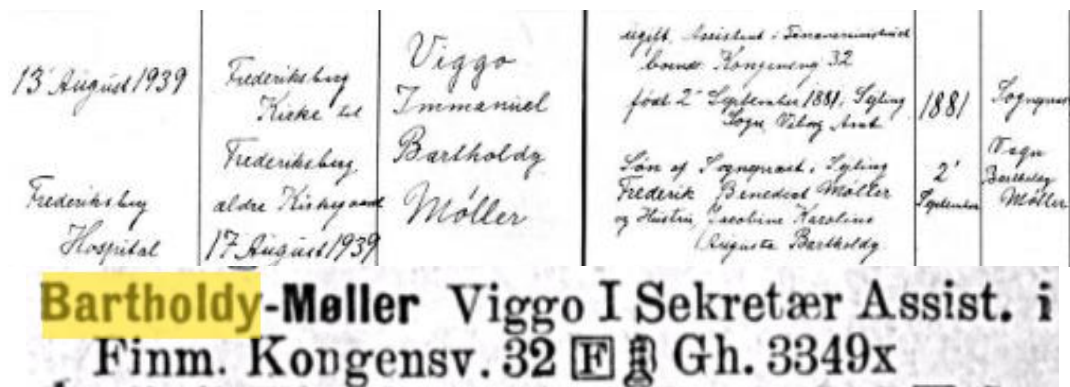 13' August 1939
Frederiksberg
Hospital
Frederiksberg
Kirke til
Frederiksberg
ældre Kirkegaard
17 August 1939
Viggo
Immanuel
Bartholdy
Møller
ugift. Assistent i Finansministeriet
boende Kongensvej 32
født 2' September 1881 i Sejling
Sogn Viborg Amt
Søn af Sognepræst i Sejling
Frederik Benedict Møller
og Hustru Jacobine Karoline
Augusta Bartholdy
1881
2'
September
Sognepræst
Vagn
Bartholdy
Møller
Bartholdy-Møller Viggo I Sekretær Assist. i
Finm. Kongensv. 32 F Gh. 3349x